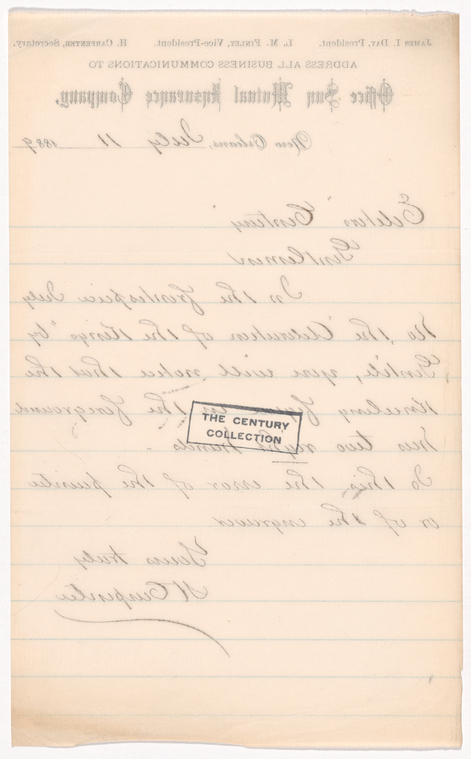 JAMES I. DAY, President. L. M. FINLEY, Vice-President. H. CARPENTER, Secretary.
ADDRESS ALL BUSINESS COMMUNICATIONS TO
Office Sun Mutual Insurance Company,
New Orleans, July 11 1889
Editor "Century"
Gentlemen
In the frontispiece July
No. the "Adoration of the Kings" by
Gentile, you will notice that the
Kneeling figure in the foreground
has two right hands.
Is this the error of the painter
or of the engraver
Yours truly
H Carpenter
THE CENTURY
COLLECTION